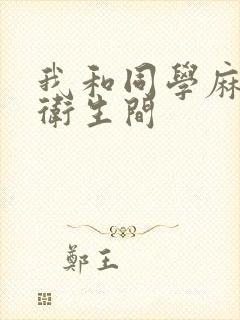 我和同學麻
衛生間
鄭王